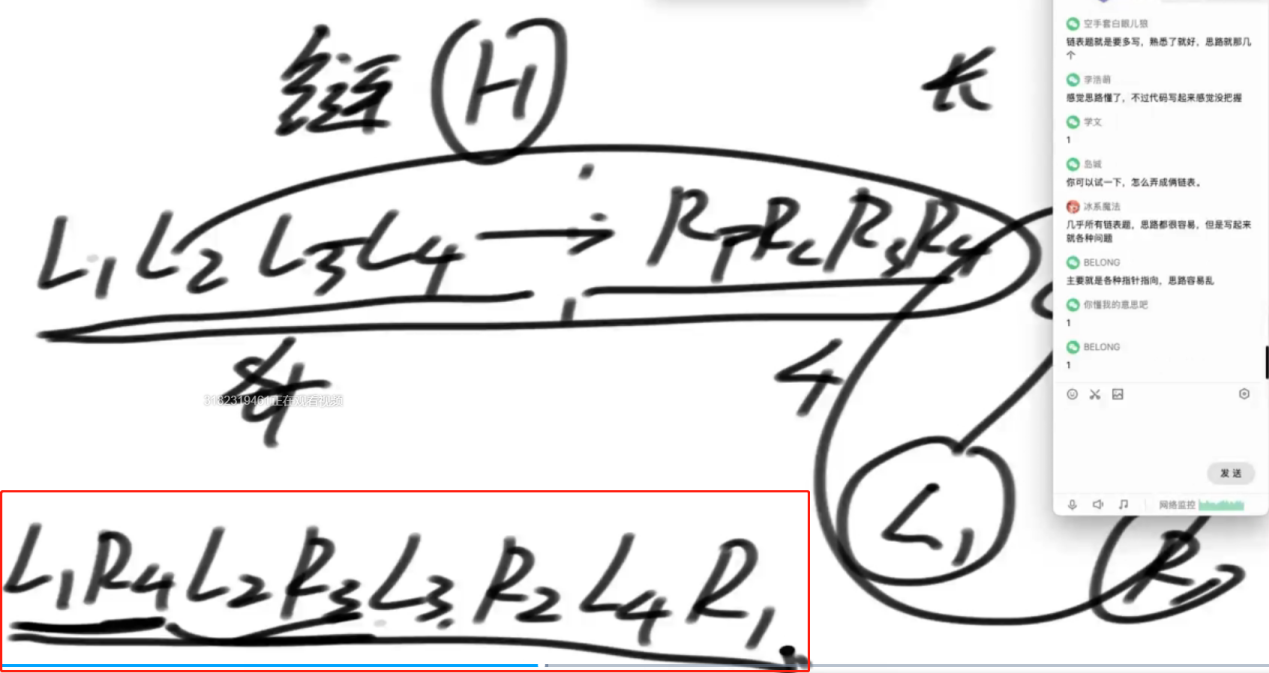 链 H 长
L1 L2 L3 L4 → R1 R2 R3 R4
4
L1
L1 R4 L2 R3 L3 R2 L4 R1
空手套白眼儿狼
链表题就是要多写，熟悉了就好，思路就那几个
李浩萌
感觉思路懂了，不过代码写起来感觉没把握
学文
1
岛城
你可以试一下，怎么弄成俩链表。
冰系魔法
几乎所有链表题，思路都很容易，但是写起来就各种问题
BELONG
主要就是各种指针指向，思路容易乱
你懂我的意思吧
1
BELONG
1
发送
网络监控
正在观看视频